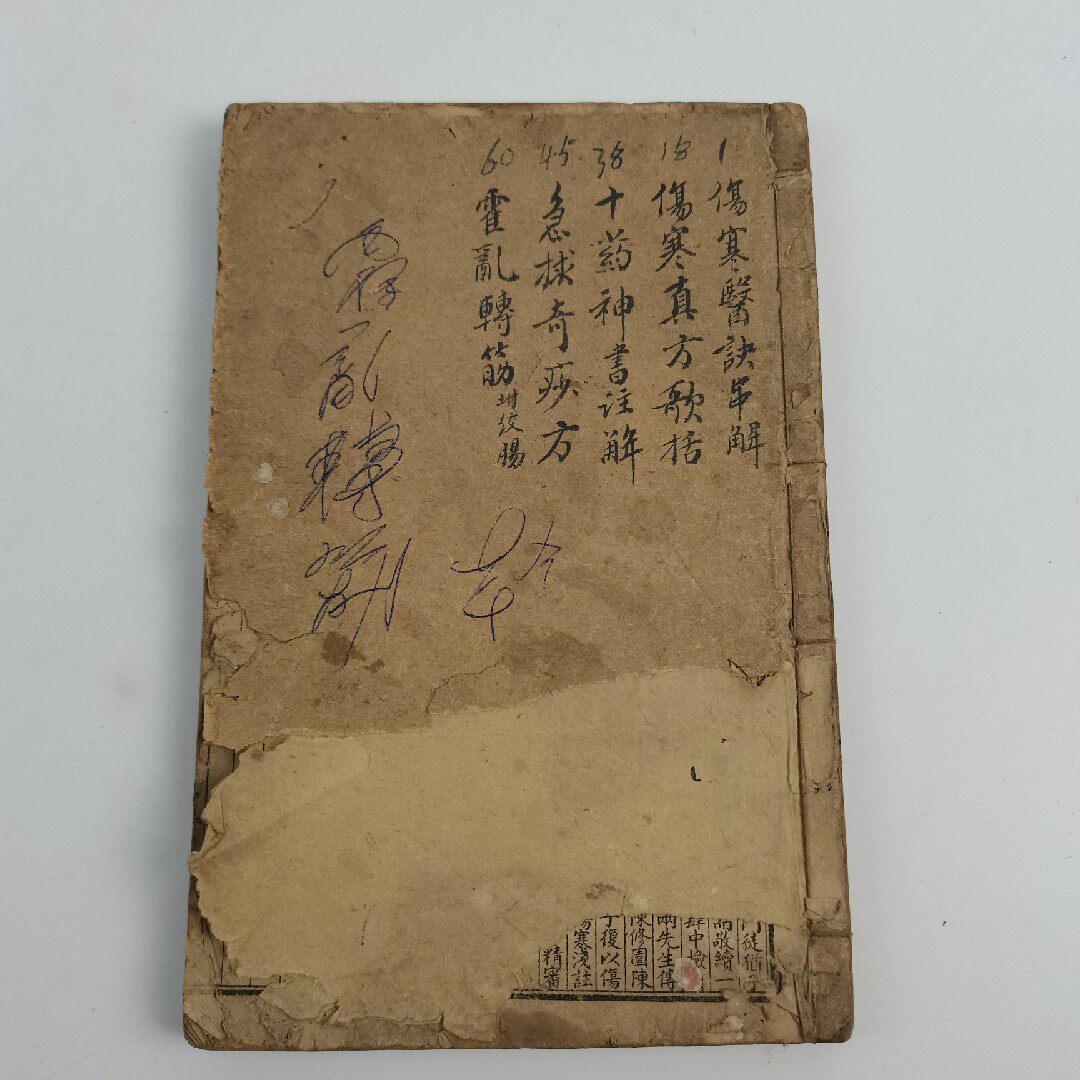 1 傷寒醫訣串解
18 傷寒真方歌括
38 十药神書註解
45 急救奇痧方
60 霍亂轉筋 坿绞腸
霍乱轉筋
門徒猶
而敬續一
肆中檢
兩先生傳
陳修園陳
丁復以傷
傷寒淺註
精審